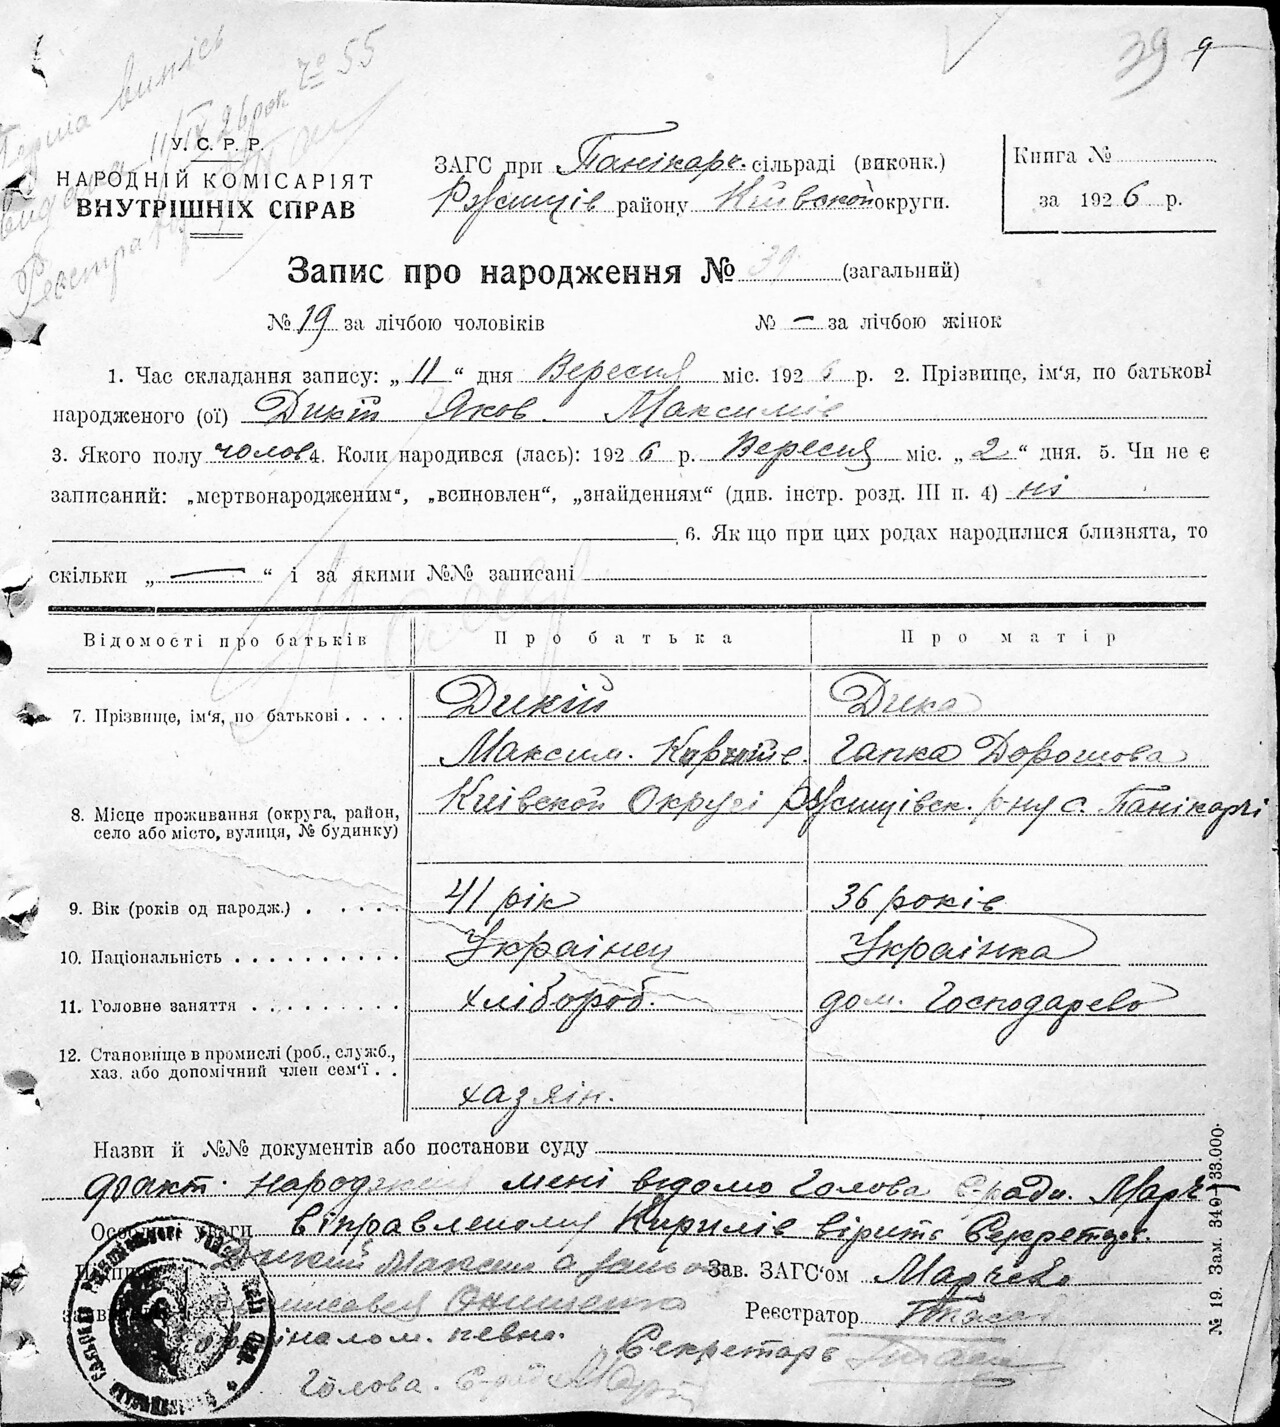 39 9
Перша випись
видана 11/IX 26 рок № 55
Реєстра
У. С. Р. Р.
НАРОДНІЙ КОМІСАРІЯТ
ВНУТРІШНІХ СПРАВ
ЗАГС при Панікарч. сільраді (виконк.)
Ржищів району Київской округи.
Книга №
за 1926 р.
Запис про народження № 39 (загальний)
№ 19 за лічбою чоловіків № — за лічбою жінок
1. Час складання запису: „11“ дня Вересня міс. 1926 р. 2. Прізвище, ім'я, по батькові
народженого (ої) Дикій Яков Максимів
3. Якого полу чолов 4. Коли народився (лась): 1926 р. Вересня міс. „2“ дня. 5. Чи не є
записаний: „мертвонародженим“, „всиновлен“, „знайденням“ (див. інстр. розд. III п. 4) ні
6. Як що при цих родах народилися близнята, то
скільки „—“ і за якими №№ записані
Відомості про батьків Про батька Про матір
7. Прізвище, ім'я, по батькові . . . . Дикій Дика
Максим. Гапка Дорошова
8. Місце проживання (округа, район,
село або місто, вулиця, № будинку) Київской Округі Ржищівск. р-ну с. Панікарчі
9. Вік (років од народж.) . . . . . 41 рік 36 років
10. Національність . . . . . . . . . . Українец Українка
11. Головне заняття . . . . . . . . . хлібороб. дом. Господарево
12. Становище в промислі (роб., служб.,
хаз. або допомічний член сем'ї . . хазяін.
Назви й №№ документів або постанови суду
факт. народження мені відомо Голова С-ради. Марч
Особливі уваги віправленому Кирилів вірить Секретар.
Підпи Дикий Максим а Зав. ЗАГС'ом
Онищенко Реєстратор
певно. Секретарь
Голова.
№ 19. Зам. 340—33.000.